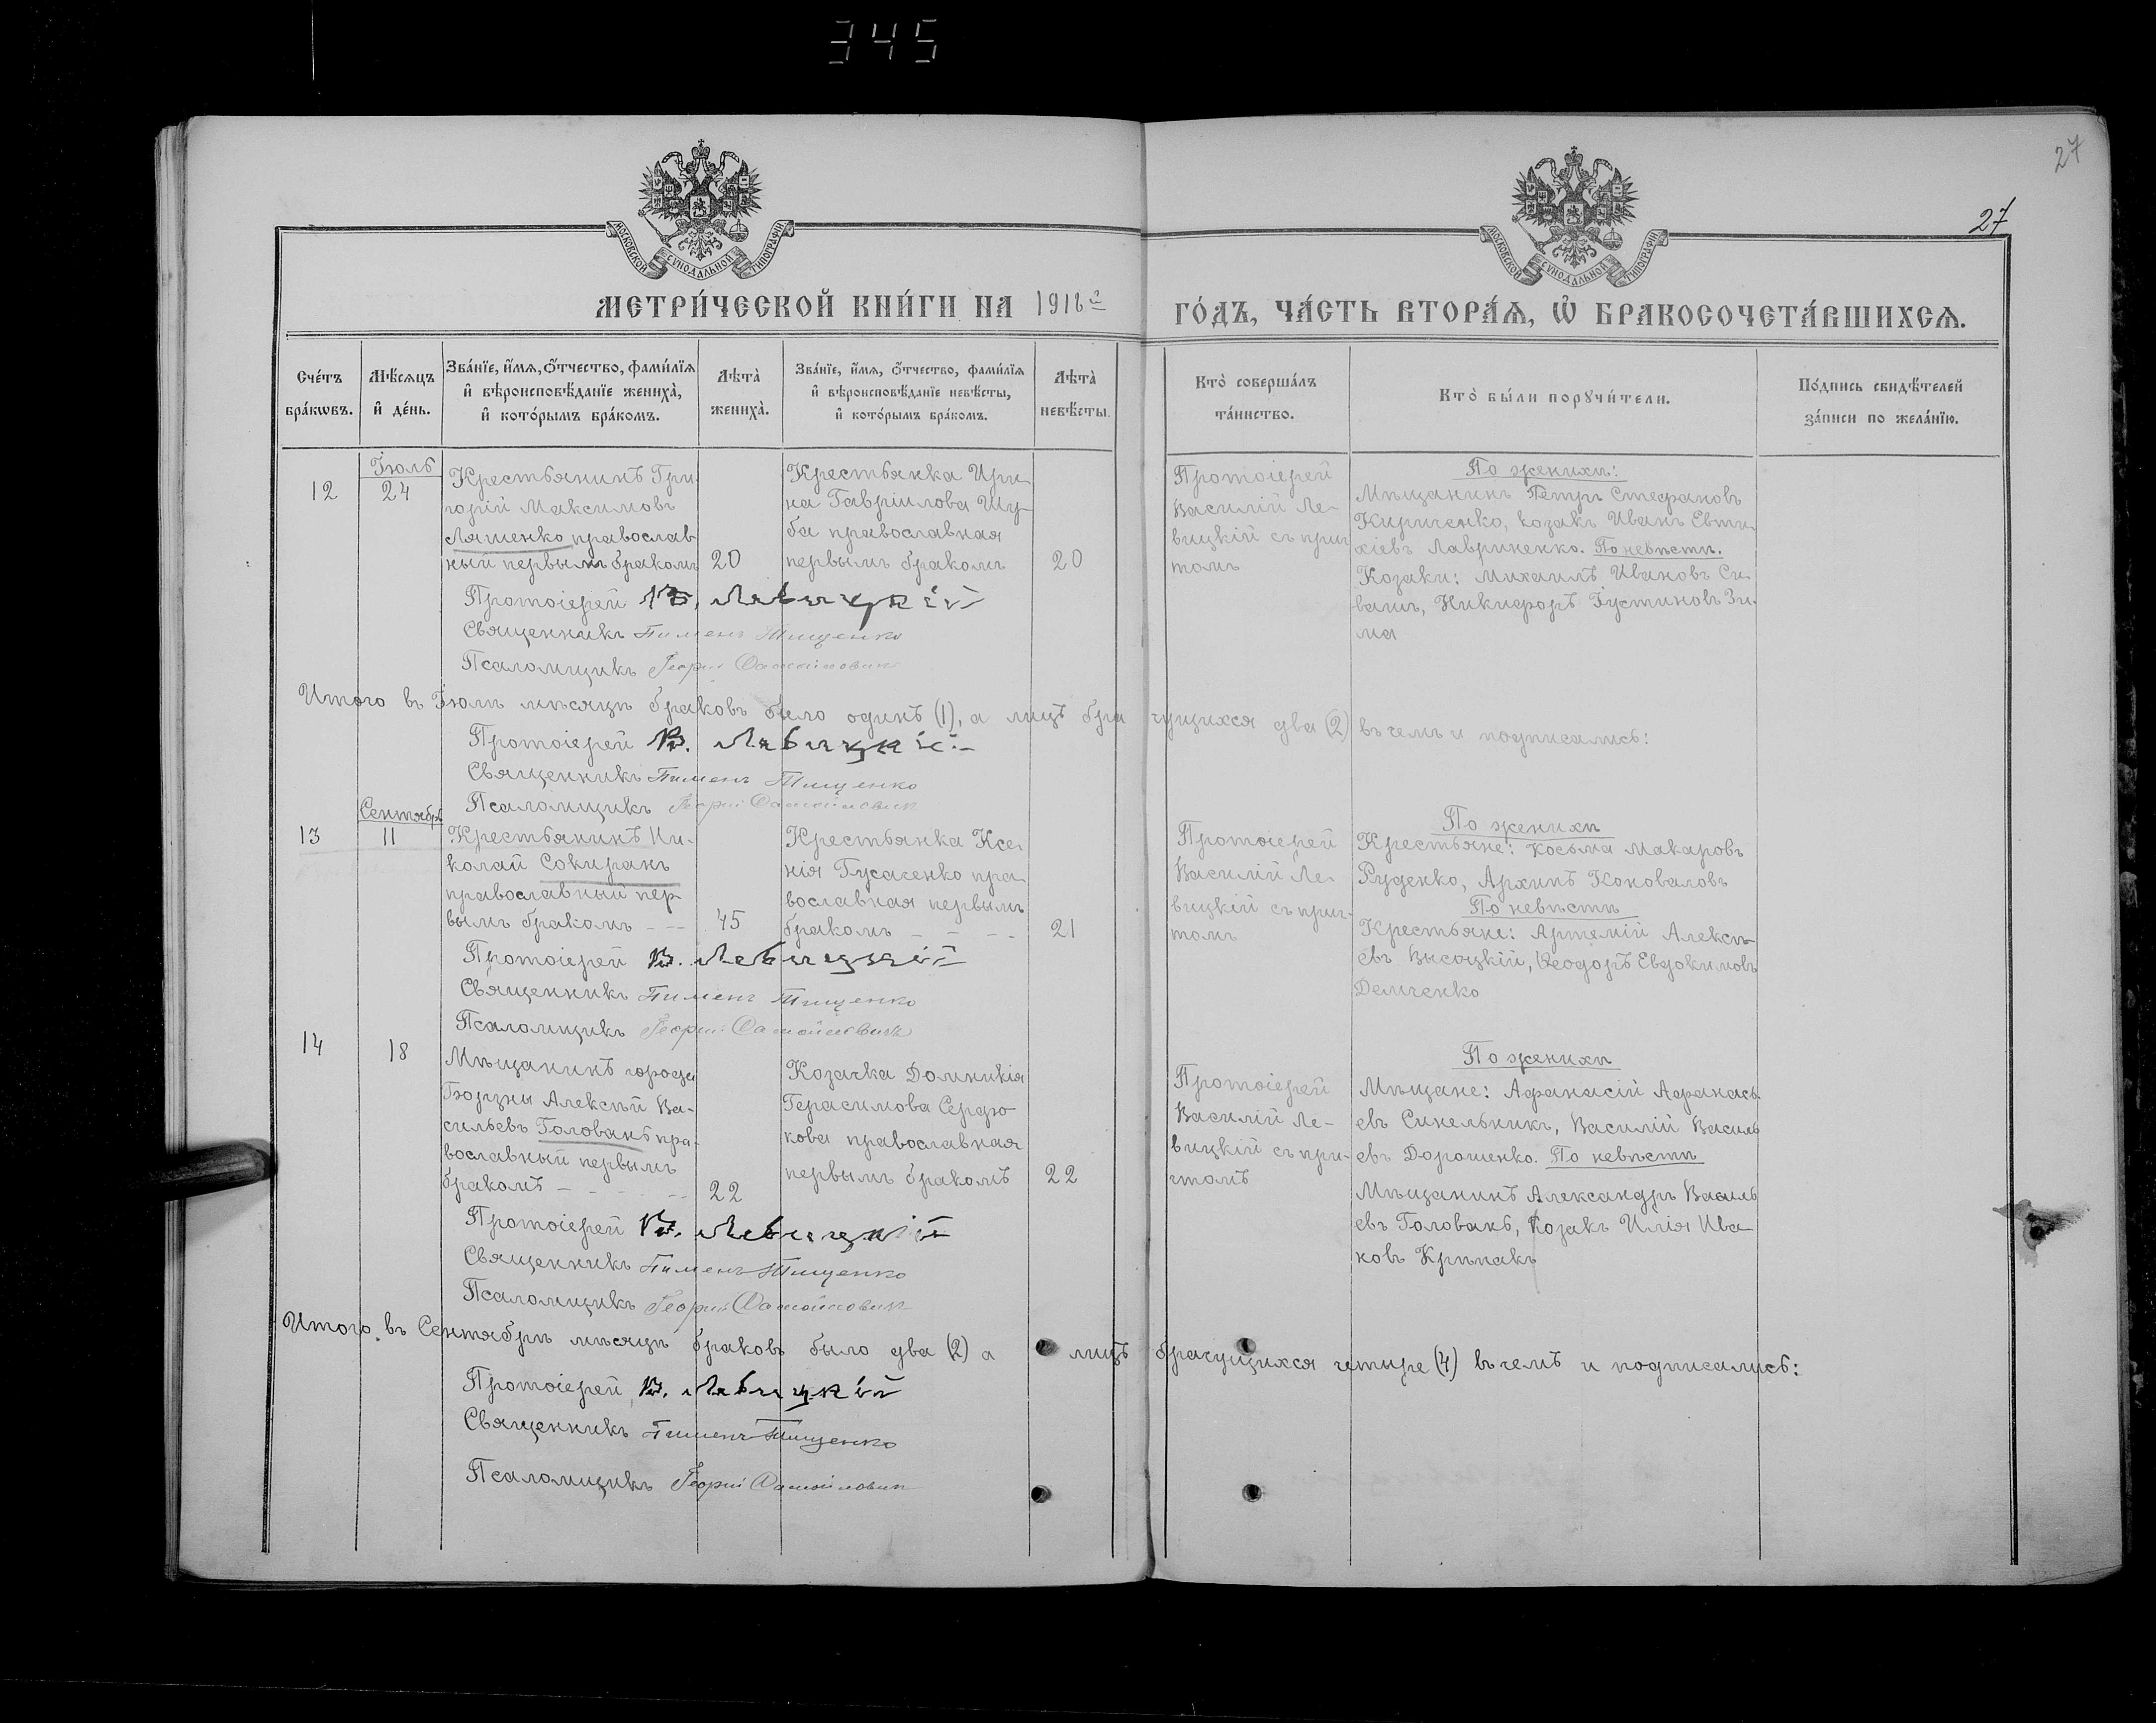 345
27
27
МОСКОВСКОЙ СУНОДАЛЬНОЙ ТИПОГРАФІИ
МОСКОВСКОЙ СУНОДАЛЬНОЙ ТИПОГРАФІИ
МЕТРИ́ЧЕСКОЙ КНИ́ГИ НА 1918й ГО́ДЪ, ЧА́СТЬ ВТОРА́Я, Ѡ҆ БРАКОСОЧЕТА́ВШИХСЯ.
Сче́тъ
бра́кѡвъ.
Мѣ́сяцъ
и҆ де́нь.
Зва́нїе, и҆́мя, ѻ҆́тчество, фами́лїя
и҆ вѣроисповѣ́данїе жениха̀,
и҆ кото́рымъ бра́комъ.
Лѣта̀
жениха̀.
Зва́нїе, и҆́мя, ѻ҆́тчество, фами́лїя
и҆ вѣроисповѣ́данїе невѣ́сты,
и҆ кото́рымъ бра́комъ.
Лѣта̀
невѣ́сты.
Кто̀ соверша́лъ
та́инство.
Кто̀ бы́ли порꙋчи́тели.
По́дпись свидѣ́телей
за́писи по жела́нїю.
12
Іюль
24
Крестьянинъ Гри-
горій Максимовъ
Ляшенко православ-
ный первымъ бракомъ
20
Крестьянка Ири-
на Гавріилова Шу-
ба православная
первымъ бракомъ
20
Протоіерей
Василій Ле-
вицкій съ прич-
томъ
По женихѣ:
Мѣщанинъ Петръ Стефановъ
Кириченко, козакъ Иванъ Евти-
хіевъ Лавриненко. По невѣстѣ.
Козаки: Михаилъ Ивановъ Си-
вашъ, Никифоръ Іустиновъ Зи-
ма
Протоіерей В. Левицкій
Священникъ Пименъ Тищенко
Псаломщикъ Георгій Самойлович
Итого въ Іюлѣ мѣсяцѣ браковъ было одинъ (1), а лицъ брачущихся два (2) въ чемъ и подписались:
Протоіерей В. Левицкій
Священникъ Пименъ Тищенко
Псаломщикъ Георгій Самойлович
13
Сентябрь
11
Крестьянинъ Ни-
колай Сокиранъ
православный пер-
вымъ бракомъ
45
Крестьянка Ксе-
нія Гусаченко пра-
вославная первымъ
бракомъ
21
Протоіерей
Василій Ле-
вицкій съ прич-
томъ
По женихѣ
Крестьяне: Косьма Макаровъ
Руденко, Архипъ Коноваловъ
По невѣстѣ
Крестьяне: Артемій Алексѣ-
евъ Высоцкій, Ѳеодоръ Евдокимовъ
Демченко
Протоіерей В. Левицкій
Священникъ Пименъ Тищенко
Псаломщикъ Георгій Самойлович
14
18
Мѣщанинъ города
Борзны Алексѣй Ва-
сильевъ Головань пра-
вославный первымъ
бракомъ
22
Козачка Домникія
Герасимова Сердю-
кова православная
первымъ бракомъ
22
Протоіерей
Василій Ле-
вицкій съ при-
чтомъ
По женихѣ
Мѣщане: Афанасій Афанась-
евъ Синельникъ, Василій Василь-
евъ Дорошенко. По невѣстѣ
Мѣщанинъ Александръ Василь
евъ Головань, Козакъ Илія Ива-
новъ Крѣпакъ
Протоіерей В. Левицкій
Священникъ Пименъ Тищенко
Псаломщикъ Георгій Самойлович
Итого въ Сентябрѣ мѣсяцѣ браковъ было два (2) а лицъ брачущихся четыре (4) въ чемъ и подписались:
Протоіерей В. Левицкій
Священникъ Пименъ Тищенко
Псаломщикъ Георгій Самойлович